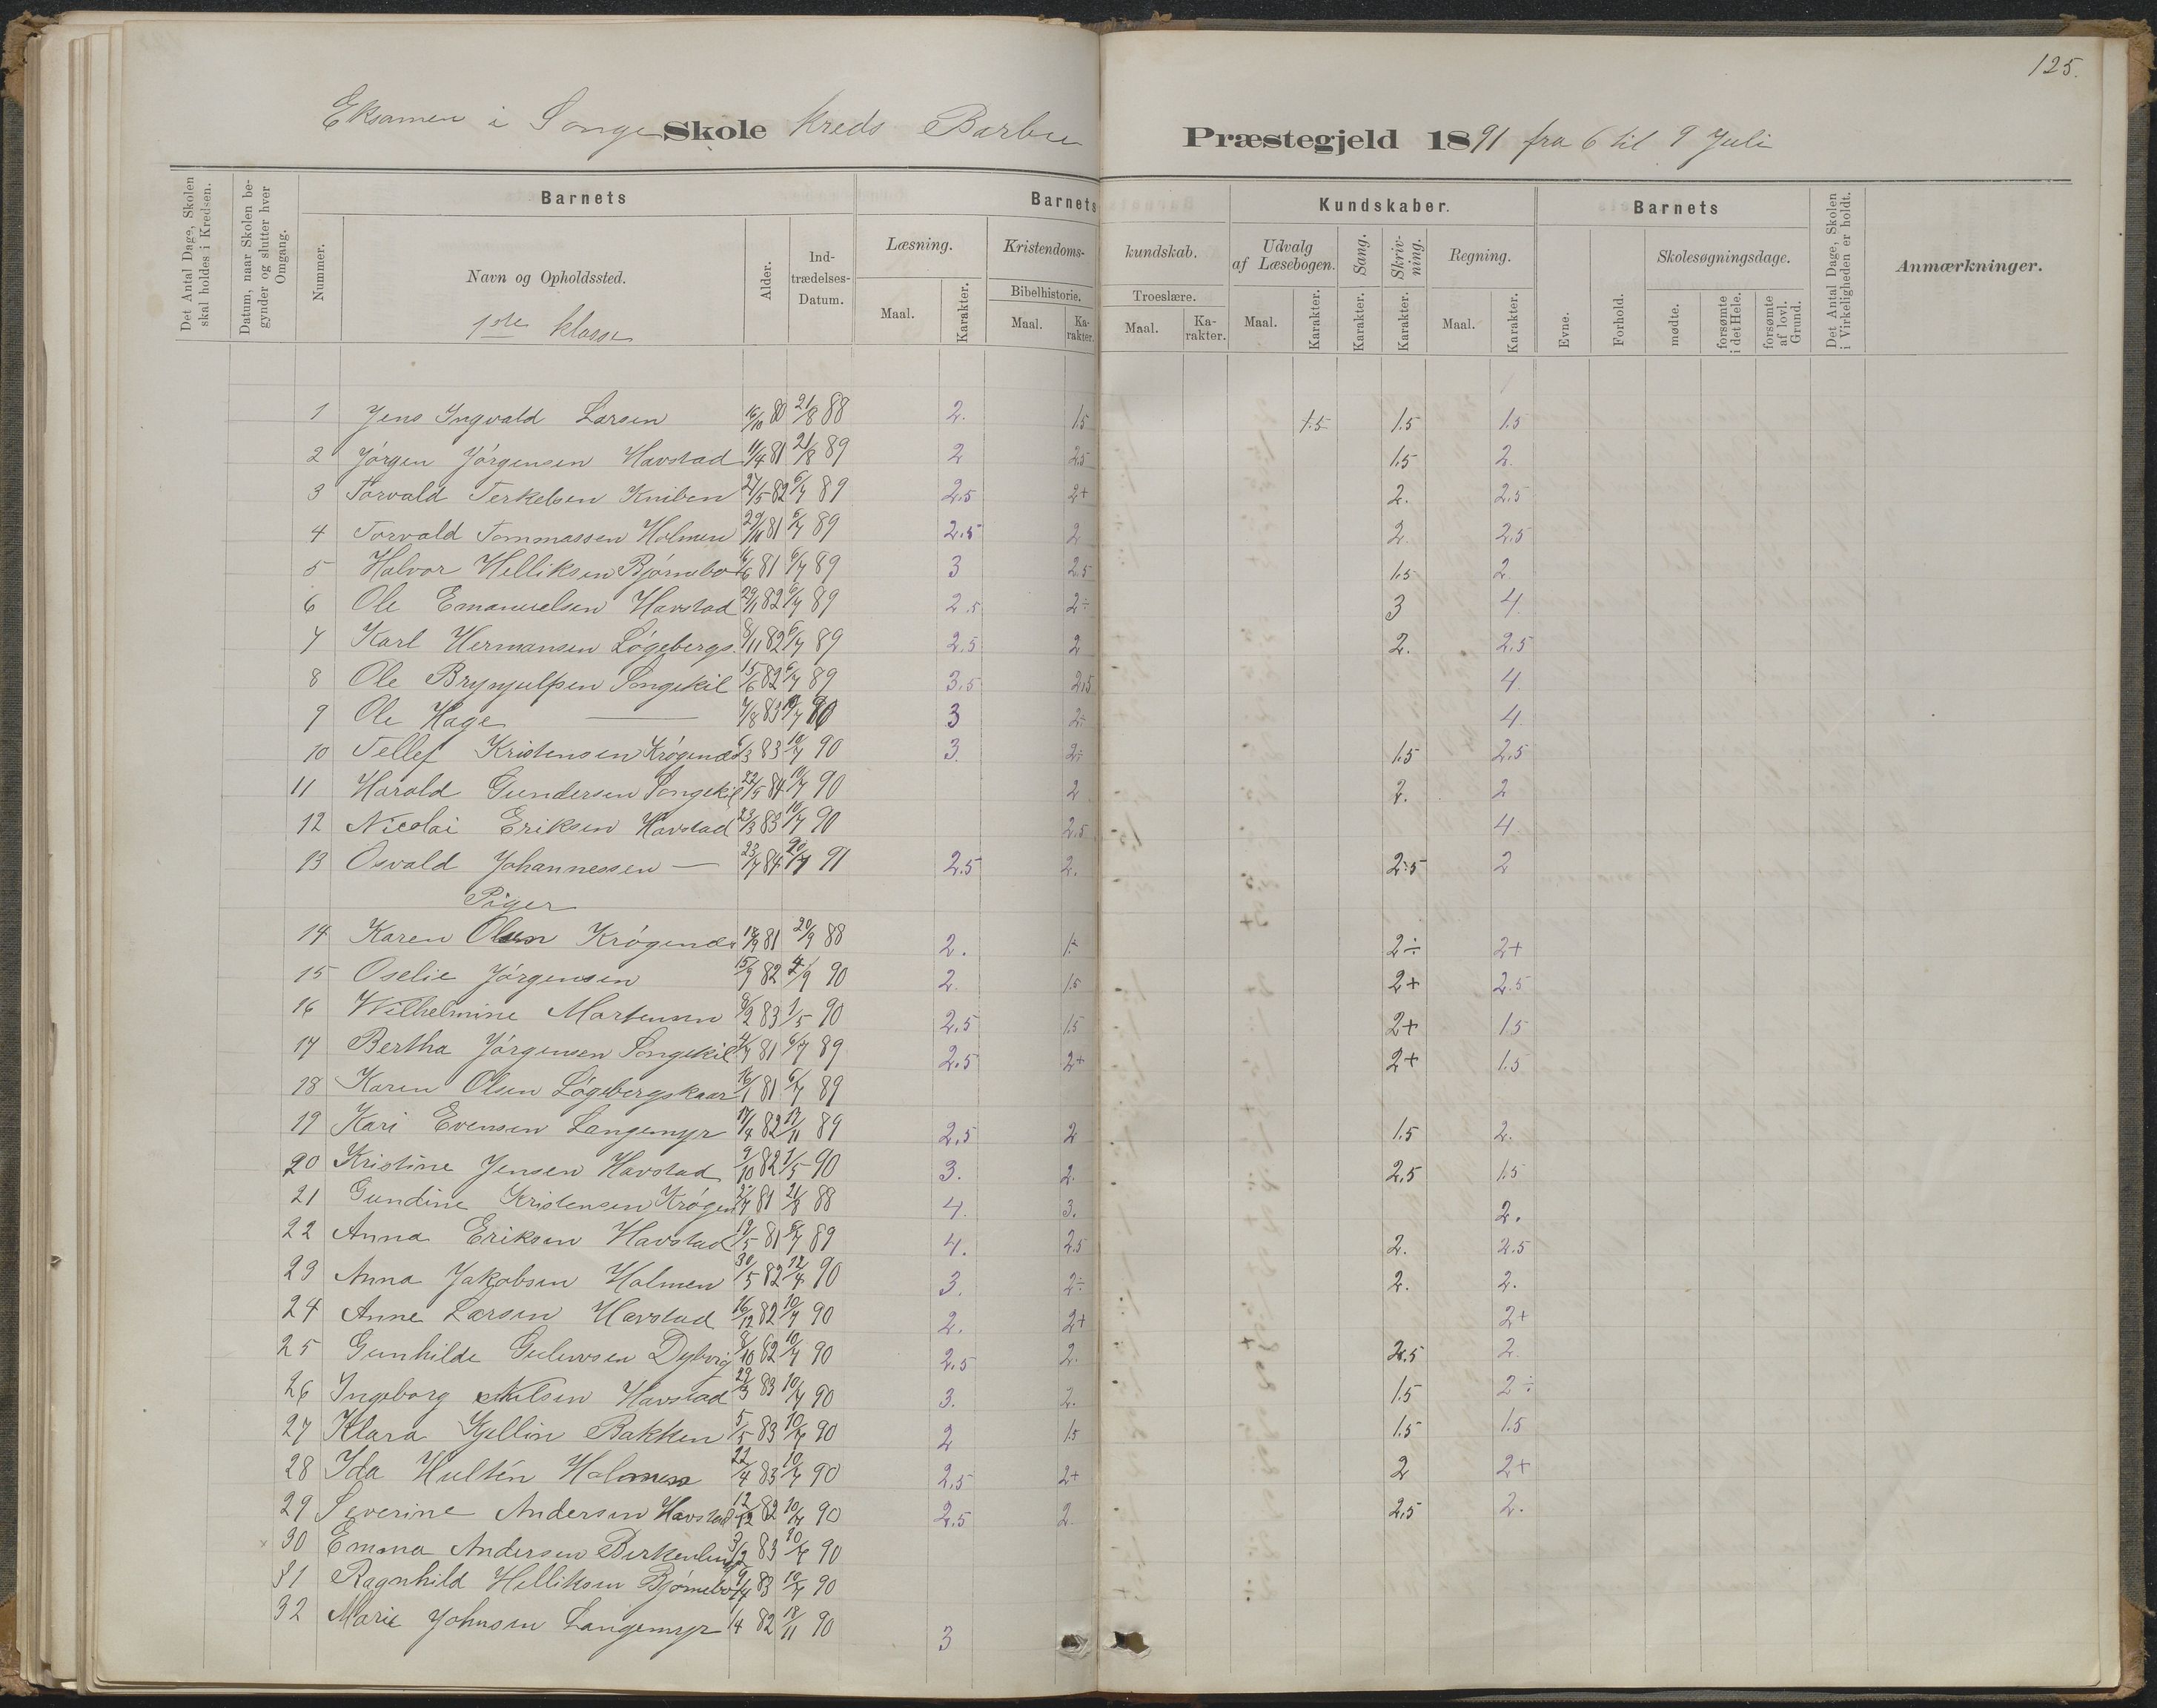 125.
Eksamen i Songe Skole kreds Barbu Præstegjeld 1891 fra 6 til 9 Juli
Det Antal Dage, Skolen skal holdes i Kredsen.
Datum, naar Skolen begynder og slutter hver Omgang.
Barnets
Nummer.
Navn og Opholdssted.
Alder.
Indtrædelses-Datum.
Barnets Kundskaber.
Læsning.
Maal.
Karakter.
Kristendoms- kundskab.
Bibelhistorie.
Maal.
Karakter.
Troeslære.
Maal.
Karakter.
Udvalg af Læsebogen.
Maal.
Karakter.
Sang.
Karakter.
Skrivning.
Karakter.
Regning.
Maal.
Karakter.
Barnets
Evne.
Forhold.
Skolesøgningsdage.
mødte.
forsømte i det Hele.
forsømte af lovl. Grund.
Det Antal Dage, Skolen i Virkeligheden er holdt.
Anmærkninger.
1ste klasse
1 Jens Ingvald Larsen 16/10 80 21/8 88 2. 1.5 1.5 1.5 1.5
2 Jörgen Jörgensen Havstad 11/4 81 21/8 89 2 2.5 1.5 2.
3 Torvald Terkelsen Kniben 27/5 82 6/7 89 2.5 2+ 2. 2.5
4 Torvald Tommassen Holmen 29/10 81 6/7 89 2.5 2 2. 2.5
5 Halvor Helliksen Björnebo 16/6 81 6/7 89 3 2.5 1.5 2
6 Ole Emanuelsen Havstad 29/11 82 6/7 89 2.5 2÷ 3 4
7 Karl Hermansen Lögebergs. 8/11 82 6/7 89 2.5 2 2. 2.5
8 Ole Brynjulfsen Songekil 15/6 82 6/7 89 3.5 2.5 4.
9 Ole Hage — 7/8 83 10/7 90 3 2÷ 4
10 Tellef Kristensen Krögenæs 6/3 83 10/7 90 3. 2÷ 1.5 2.5
11 Harald Gundersen Songekil 22/5 84 10/7 90 2 2. 2
12 Nicolai Eriksen Havstad 23/3 83 10/7 90 2.5 4
13 Osvald Johannessen — 23/7 84 20/7 91 2.5 2. 2.5 2
Piger
14 Karen Olsen Krögenæs 14/9 81 20/9 88 2. 1÷ 2÷ 2+
15 Oselie Jörgensen 15/9 82 4/9 90 2. 1.5 2+ 2.5
16 Wilhelmine Mortensen 8/2 83 1/5 90 2.5 1.5 2+ 1.5
17 Bertha Jörgensen Songekil 2/7 81 6/7 89 2.5 2+ 2+ 1.5
18 Karen Olsen Lögebergskaar 16/1 81 6/7 89
19 Kari Evensen Langemyr 17/4 82 17/11 89 2.5 2 1.5 2.
20 Kristine Jensen Havstad 9/10 82 1/5 90 3. 2. 2.5 1.5
21 Gundine Kristensen Krögen 2/7 81 21/8 88 4. 3. 2.
22 Anna Eriksen Havstad 12/5 81 6/7 89 4. 2.5 2. 2.5
23 Anna Jakobsen Holmen 30/5 82 12/4 90 3. 2÷ 2. 2.
24 Anne Larsen Havstad 16/12 82 10/7 90 2. 2+ 2+
25 Gunhilde Gulovsen Dybvig 8/10 82 10/7 90 2.5 2. 2.5 2.
26 Ingeborg Nilsen Havstad 22/3 83 10/7 90 3. 2. 1.5 2÷
27 Klara Kjellin Bakken 5/5 83 10/7 90 2 1.5 1.5 1.5
28 Ida Hultén Holmen 22/4 83 10/7 90 2.5 2+ 2 2+
29 Severine Andersen Havstad 12/12 82 10/7 90 2.5 2. 2.5 2.
30 Emma Andersen Birkenlund 3/2 83 10/7 90
31 Ragnhild Helliksen Björnebo 9/4 83 10/7 90
32 Marie Johnsen Langemyr 1/4 82 18/11 90 3